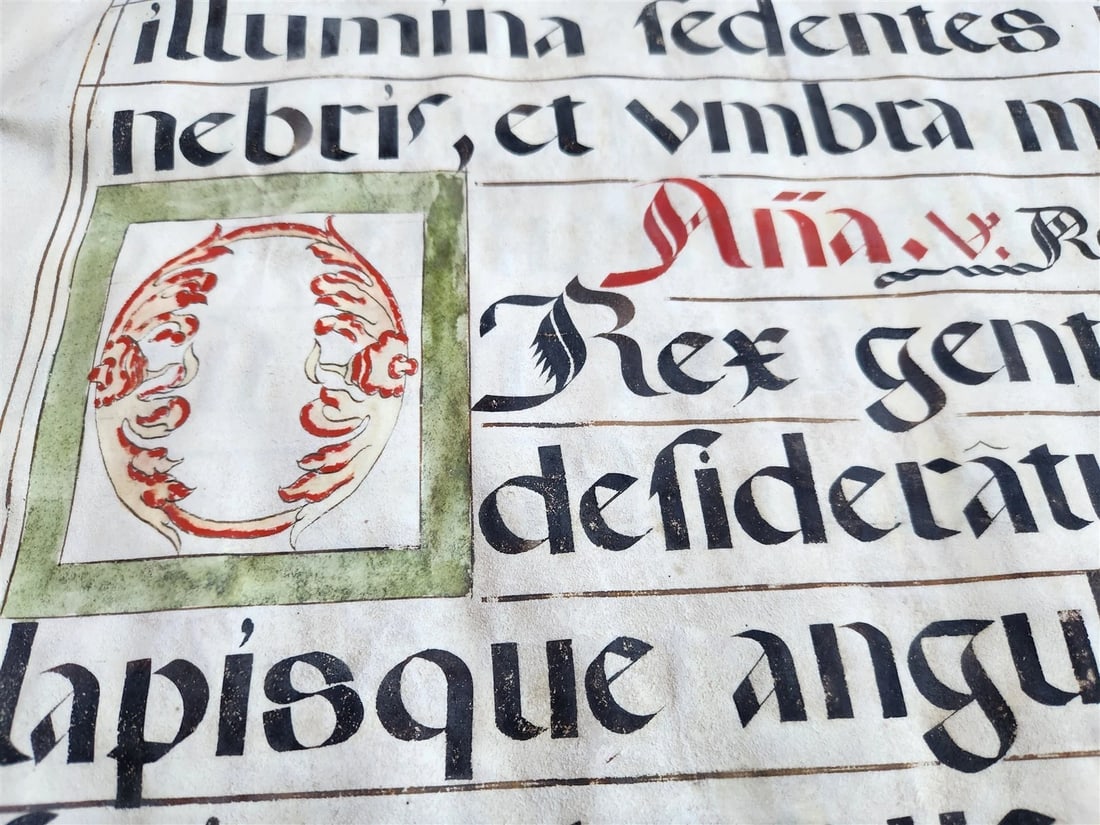 illumina ſedentes
nebris, et vmbra m
Añа. v. R
O Rex gent
deſiderâtu
lapisque angul